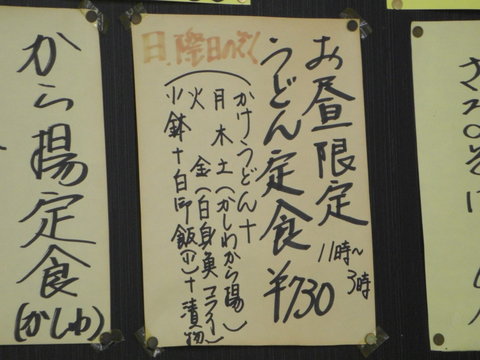 お昼限定
11時〜
3時
うどん定食 ¥730
(かけうどん+
月木土(かしわから揚)
火 金(白身魚フライ)
小鉢+白御飯(小)+漬物)
日、際日のぞく
から揚定食
(かしわ)